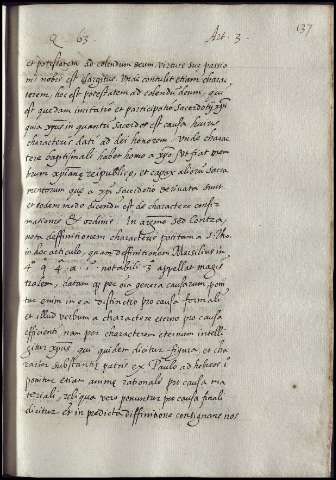 Q. 63. Art. 3. 137
et potestatem ad colendum deum virtute sue passio
nis nobis est elargitus. Unde contulit etiam charac
terem, hoc est potestatem ad colendum deum, qui
est quedam imitatio et participatio sacerdotij xpi
qua xpus in quantum sacerdos est causa huius
characteris dati ad dei honorem. Unde charac
tere baptismali habet homo a xpo ut fiat mem
brum xpiane reipublice, et capax aliorum sacra
mentorum que a xpi sacerdotio derivata sunt
et eodem modo dicendum est de charactere confir
mationis & ordinis. In argumento Sed Contra,
nota deffinitionem characteris positam a S. Tho.
in hoc articulo, quam deffinitionem Marsilius in
4 q. 4. a. 1. notabili 3 appellat magis
tralem, datam per omnia genera causarum poni
tur enim in ea distinctio pro causa formali
et illud verbum a charactere eterno pro causa
efficienti nam per characterem eternum intelli
gitur xpus qui quidem dicitur figura et cha
racter substantie patris ex Paulo ad hebreos 1
ponitur etiam anime rationali pro causa ma
teriali, reliqua vero ponuntur pro causa finali
dicitur et in predicta diffinitione consignare nos